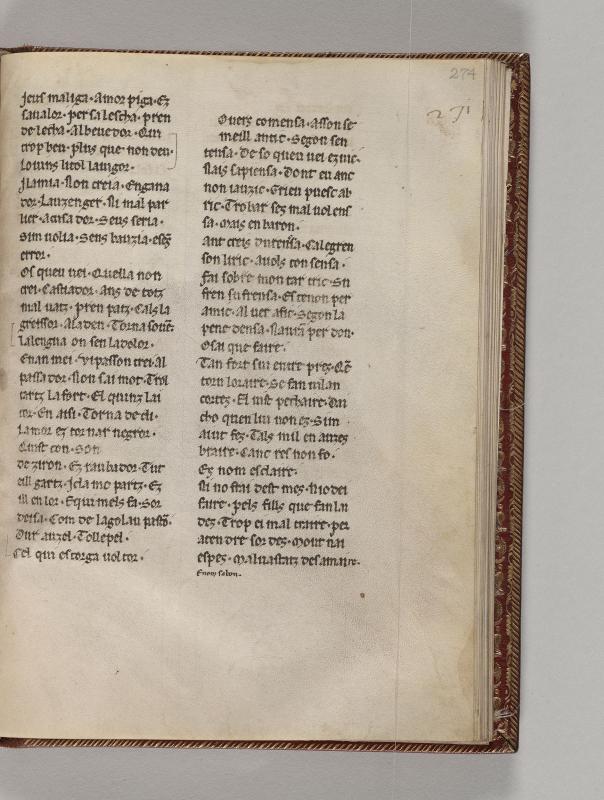 274
271
jeus maliga · Amor piga · Ez
sa ualor · per sa lescha · pren
de lecha · al beuedor · Qui
trop ben · plus que non deu ·
non creia · Engana
dor · Lauzenger · Ni mal par
lier · acusador · Seus seria ·
Sim uolia · Sens bauzia · esez
error ·
Os queu uei · Quella non
crei · Castiador · Anz de totz
mal uatz · pren patz · Cals la
greissor · Torna
La lengua on sen la dolor ·
Enan mei · passon crei · Al
passador · Non sai mot · Trol
tartz La fort · El quinz Lai
cor · En aisi · Torna de di ·
Lamor ez tornar negror ·
con · son
de ziron · Ez raubador · Tut
cill gartz · Icla me partz · Ez
ill en lor · Equi mels fa · Sor
deisa · Com de lagolau
Dur auzel · Tollepel ·
Cel qui escorga uoltor ·
Ouers comensa · Asson se
meill antic · Segon sen
tensa · De so queu uei
sapiensa · Dont eu anc
non iauzic · Greu puesc ab
ric · Trobar ses mal uolens
sa · Mais en baron ·
Ant creis Calegren
son liric · Auols consensa ·
Fai sobre mon tar tric · Su
fren sufrensa · Estenon per
amic · Al uer afic · Segon la
pene densa · per don ·
O sai que faire ·
Tan fort sui entre prez ·
torn lo raire · Se fan uilan
cortez · El iust pechaire · Dri
cho quen lui non ez · Sim
aiut fez · Tals mil en auzez
braire · Canc res non fo ·
Ez nom esclaire ·
Ni no dest mes ·
faire · pels fills que fan lu
dez · Trop ei mal traire · per
atendre sordez · Mout nai
espes · Maluastatz desamaire ·
E nom sabon ·